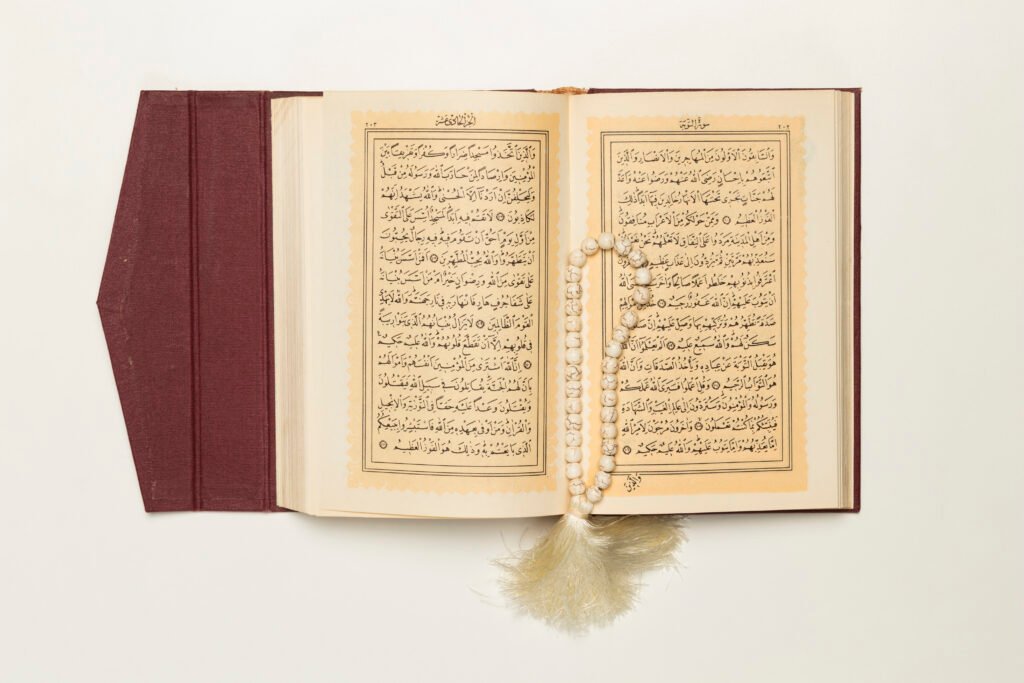 سورة التوبة ٢٠٢
وَالسَّابِقُونَ الْاَوَّلُونَ مِنَ الْمُهَاجِرِينَ وَالْاَنْصَارِ وَالَّذِينَ
اتَّبَعُوهُمْ بِاِحْسَانٍ رَضِيَ اللّٰهُ عَنْهُمْ وَرَضُوا عَنْهُ وَاَعَدَّ
لَهُمْ جَنَّاتٍ تَجْرِي تَحْتَهَا الْاَنْهَارُ خَالِدِينَ فِيهَا اَبَدًا ذٰلِكَ
الْفَوْزُ الْعَظِيمُ وَمِمَّنْ حَوْلَكُمْ مِنَ الْاَعْرَابِ مُنَافِقُونَ
وَمِنْ اَهْلِ الْمَدِينَةِ مَرَدُوا عَلَى النِّفَاقِ لَا تَعْلَمُهُمْ نَحْنُ
سَنُعَذِّبُهُمْ مَرَّتَيْنِ ثُمَّ يُرَدُّونَ اِلٰى عَذَابٍ عَظِيمٍ
اعْتَرَفُوا بِذُنُوبِهِمْ خَلَطُوا عَمَلًا صَالِحًا وَاٰخَرَ اللّٰهُ
اَنْ يَتُوبَ عَلَيْهِمْ اِنَّ اللّٰهَ غَفُورٌ رَحِيمٌ
صَدَقَةً تُطَهِّرُهُمْ وَتُزَكِّيهِمْ بِهَا وَصَلِّ عَلَيْهِمْ اِنَّ
سَكَنٌ لَهُمْ وَاللّٰهُ سَمِيعٌ عَلِيمٌ اَلَمْ يَعْلَمُوا اَنَّ اللّٰهَ
هُوَ يَقْبَلُ التَّوْبَةَ عَنْ عِبَادِهِ وَيَأْخُذُ الصَّدَقَاتِ وَاَنَّ اللّٰهَ
هُوَ التَّوَّابُ الرَّحِيمُ وَقُلِ اعْمَلُوا فَسَيَرَى اللّٰهُ عَمَلَكُمْ
وَرَسُولُهُ وَالْمُؤْمِنُونَ وَسَتُرَدُّونَ اِلٰى عَالِمِ الْغَيْبِ وَالشَّهَادَةِ
فَيُنَبِّئُكُمْ بِمَا كُنْتُمْ تَعْمَلُونَ وَاٰخَرُونَ مُرْجَوْنَ لِاَمْرِ اللّٰهِ
اِمَّا يُعَذِّبُهُمْ وَاِمَّا يَتُوبُ عَلَيْهِمْ وَاللّٰهُ عَلِيمٌ حَكِيمٌ
وَالَّذِينَ
الجزء الحادي عشر ٢٠٣
وَالَّذِينَ اتَّخَذُوا مَسْجِدًا ضِرَارًا وَكُفْرًا وَتَفْرِيقًا بَيْنَ
الْمُؤْمِنِينَ وَاِرْصَادًا لِمَنْ حَارَبَ اللّٰهَ وَرَسُولَهُ مِنْ قَبْلُ
وَلَيَحْلِفُنَّ اِنْ اَرَدْنَا اِلَّا الْحُسْنٰى وَاللّٰهُ يَشْهَدُ اِنَّهُمْ
لَكَاذِبُونَ لَا تَقُمْ فِيهِ اَبَدًا لَمَسْجِدٌ اُسِّسَ عَلَى التَّقْوٰى
مِنْ اَوَّلِ يَوْمٍ اَحَقُّ اَنْ تَقُومَ فِيهِ فِيهِ رِجَالٌ يُحِبُّونَ
اَنْ يَتَطَهَّرُوا وَاللّٰهُ يُحِبُّ الْمُطَّهِّرِينَ اَفَمَنْ اَسَّسَ بُنْيَانَهُ
عَلٰى تَقْوٰى مِنَ اللّٰهِ وَرِضْوَانٍ خَيْرٌ اَمْ مَنْ اَسَّسَ بُنْيَانَهُ
عَلٰى شَفَا جُرُفٍ هَارٍ فَانْهَارَ بِهِ فِي نَارِ جَهَنَّمَ وَاللّٰهُ لَا يَهْدِي
الْقَوْمَ الظَّالِمِينَ لَا يَزَالُ بُنْيَانُهُمُ الَّذِي بَنَوْا رِيبَةً
فِي قُلُوبِهِمْ اِلَّا اَنْ تَقَطَّعَ قُلُوبُهُمْ وَاللّٰهُ عَلِيمٌ حَكِيمٌ
اِنَّ اللّٰهَ اشْتَرٰى مِنَ الْمُؤْمِنِينَ اَنْفُسَهُمْ وَاَمْوَالَهُمْ
بِاَنَّ لَهُمُ الْجَنَّةَ يُقَاتِلُونَ فِي سَبِيلِ اللّٰهِ فَيَقْتُلُونَ
وَيُقْتَلُونَ وَعْدًا عَلَيْهِ حَقًّا فِي التَّوْرٰيةِ وَالْاِنْجِيلِ
وَالْقُرْاٰنِ وَمَنْ اَوْفٰى بِعَهْدِهِ مِنَ اللّٰهِ فَاسْتَبْشِرُوا بِبَيْعِكُمُ
الَّذِي بَايَعْتُمْ بِهِ وَذٰلِكَ هُوَ الْفَوْزُ الْعَظِيمُ